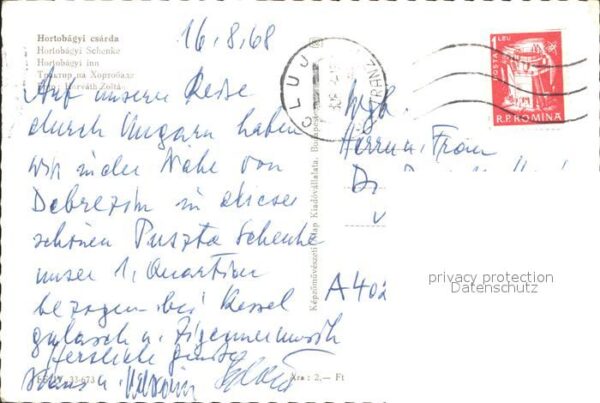 Hortobágyi csárda
Hortobágyi Schenke
Hortobágyi inn
Трактир на Хортобаде
Horváth Zoltán
16.8.68
Auf unserer Reise
durch Ungarn haben
wir in der Nähe von
Debrezin in dieser
schönen Puszta Schenke
unser 1. Quartier
bezogen bei Kessel
gulasch u. Zigeunermusik
Herzliche Grüße
Hans u.
Képzőművészeti Alap Kiadóvállalata, Budapest
Ára : 2,— Ft
CLUJ
POSTA
1 LEU
R.P. ROMINA
Herrn u. Frau
Dr
A 402
privacy protection
Datenschutz